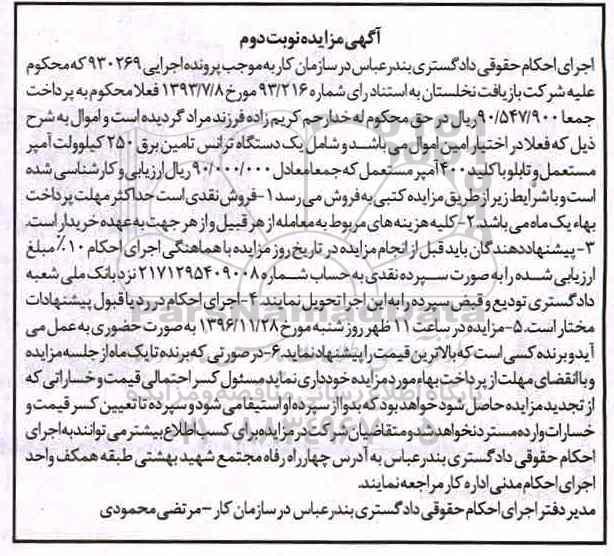 آگهی مزایده نوبت دوم
اجرای احکام حقوقی دادگستری بندرعباس در سازمان کار به موجب پرونده اجرایی ۹۳۰۲۶۹ که محکوم
علیه شرکت بازیافت نخلستان به استناد رای شماره ۹۳/۲۱۶ مورخ ۱۳۹۳/۷/۸ فعلا محکوم به پرداخت
جمعا ۹۰/۵۴۷/۹۰۰ ریال در حق محکوم له خدارحم کریم زاده فرزند مراد گردیده است و اموال به شرح
ذیل که فعلا در اختیار امین اموال می باشد و شامل یک دستگاه ترانس تامین برق ۲۵۰ کیلوولت آمپر
مستعمل و تابلو با کلید ۴۰۰ آمپر مستعمل که جمعا معادل ۹۰/۰۰۰/۰۰۰ ریال ارزیابی و کارشناسی شده
است و با شرایط زیر از طریق مزایده کتبی به فروش می رسد ۱- فروش نقدی است حداکثر مهلت پرداخت
بهاء یک ماه می باشد. ۲- کلیه هزینه های مربوط به معامله از هر قبیل و از هر جهت به عهده خریدار است.
۳- پیشنهاد دهندگان باید قبل از انجام مزایده در تاریخ روز مزایده با هماهنگی اجرای احکام ۱۰٪ مبلغ
ارزیابی شده را به صورت سپرده نقدی به حساب شماره ۲۱۷۱۲۹۵۴۰۹۰۰۸ نزد بانک ملی شعبه
دادگستری تودیع و قبض سپرده را به این اجرا تحویل نمایند. ۴- اجرای احکام در رد یا قبول پیشنهادات
مختار است. ۵- مزایده در ساعت ۱۱ ظهر روز شنبه مورخ ۱۳۹۶/۱۱/۲۸ به صورت حضوری به عمل می
آید و برنده کسی است که بالاترین قیمت را پیشنهاد نماید. ۶- در صورتی که برنده تا یک ماه از جلسه مزایده
و با انقضای مهلت از پرداخت بهاء مورد مزایده خودداری نماید مسئول کسر احتمالی قیمت و خساراتی که
از تجدید مزایده حاصل شود خواهد بود که بدوا از سپرده او استیفا می شود و سپرده تا تعیین کسر قیمت و
خسارات وارده مسترد نخواهد شد و متقاضیان شرکت در مزایده برای کسب اطلاع بیشتر می توانند به اجرای
احکام حقوقی دادگستری بندرعباس به آدرس چهارراه رفاه مجتمع شهید بهشتی طبقه همکف واحد
اجرای احکام مدنی اداره کار مراجعه نمایند.
مدیر دفتر اجرای احکام حقوقی دادگستری بندرعباس در سازمان کار - مرتضی محمودی